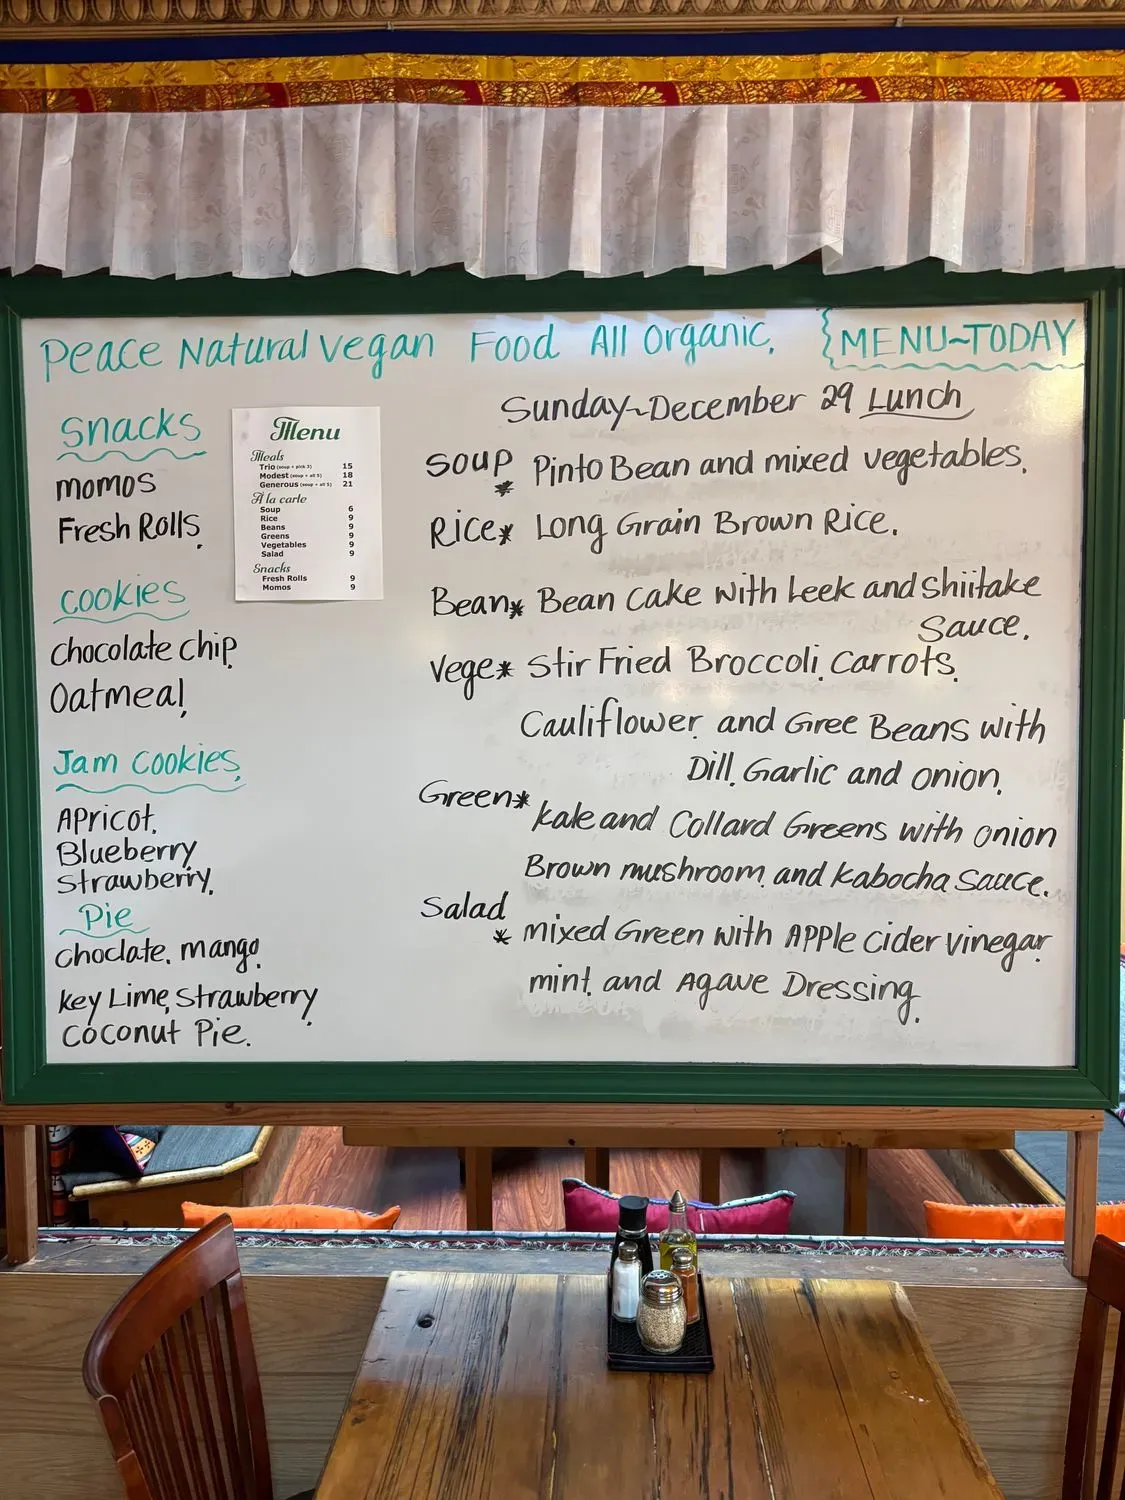 Peace Natural Vegan Food All Organic.
MENU~TODAY
Snacks
momos
Fresh Rolls.
Cookies
Chocolate chip.
Oatmeal.
Jam Cookies.
Apricot.
Blueberry
Strawberry.
Pie
Choclate. mango.
Key Lime, Strawberry.
Coconut Pie.
Menu
Meals
Trio (soup + pick 3) 15
Modest (soup + all 5) 18
Generous (soup + all 5) 21
À la carte
Soup 6
Rice 9
Beans 9
Greens 9
Vegetables 9
Salad 9
Snacks
Fresh Rolls 9
Momos 9
Sunday~December 29 Lunch
Soup * Pinto Bean and mixed vegetables.
Rice* Long Grain Brown Rice.
Bean* Bean Cake with Leek and Shiitake
Sauce.
Vege* Stir Fried Broccoli, Carrots.
Cauliflower, and Gree Beans with
Dill, Garlic and onion.
Green* Kale and Collard Greens with onion
Brown mushroom, and Kabocha Sauce.
Salad * mixed Green with Apple Cider Vinegar
mint, and Agave Dressing.